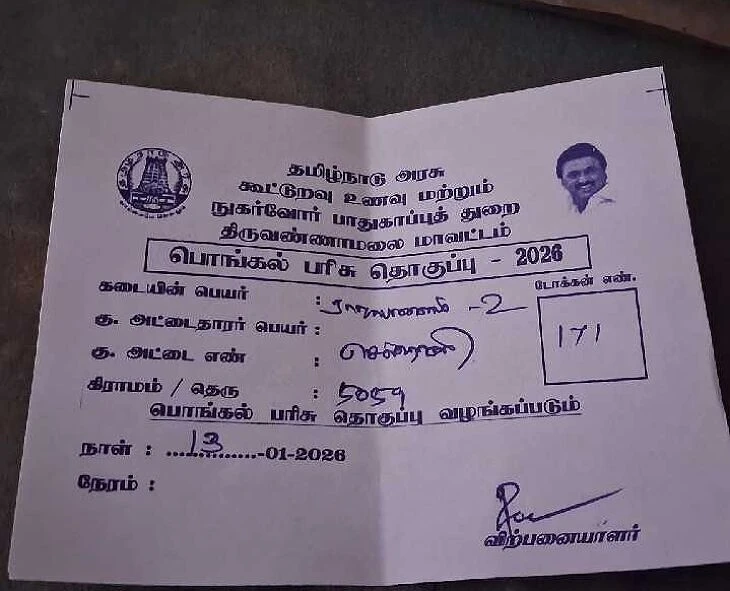 தமிழ்நாடு அரசு
கூட்டுறவு உணவு மற்றும்
நுகர்வோர் பாதுகாப்புத் துறை
திருவண்ணாமலை மாவட்டம்
பொங்கல் பரிசு தொகுப்பு - 2026
டோக்கன் எண்.
171
கடையின் பெயர் : -2
கு. அட்டைதாரர் பெயர் :
கு. அட்டை எண் :
கிராமம் / தெரு : 5059
பொங்கல் பரிசு தொகுப்பு வழங்கப்படும்
நாள் : ....13....-01-2026
நேரம் :
விற்பனையாளர்